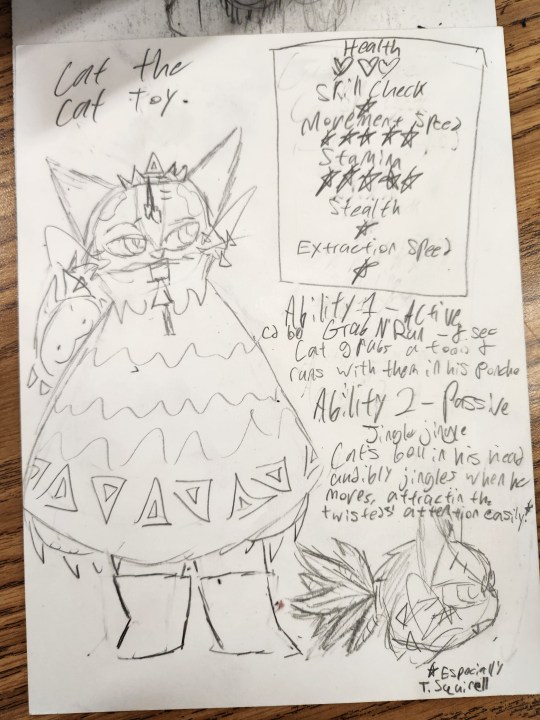 Cat the
Cat Toy.
Health
♡♡♡
Skill Check
☆
Movement Speed
☆☆☆☆☆
Stamina
☆☆☆☆☆
Stealth
☆
Extraction Speed
☆
Ability 1 - Active
Grab N Run - sec
Cat grabs a toon &
runs with them in his
Ability 2 - Passive
Jingle jingle
Cat's bell in his head
audibly jingles when he
moves, attractin the
twisteds' attention easily!*
*Especially
T. Squirell